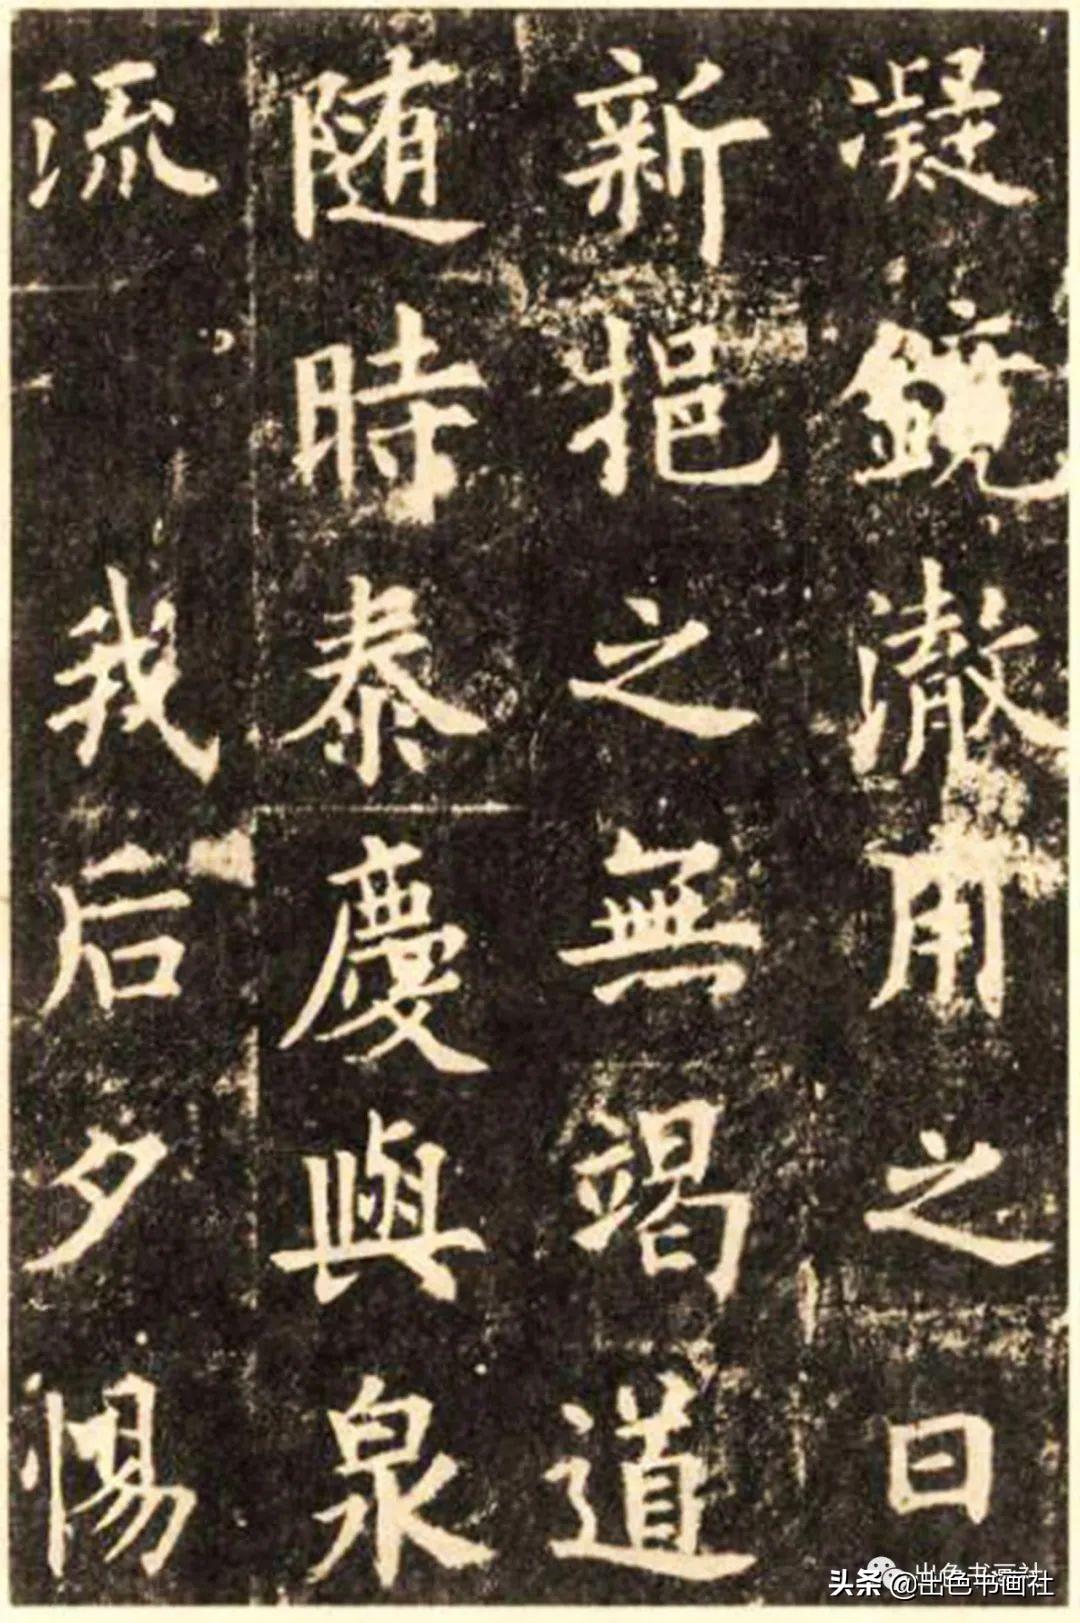 凝鏡澈用之日
新挹之無竭道
随時泰慶與泉
流我后夕惕
头条 @出色书画社
出色书画社